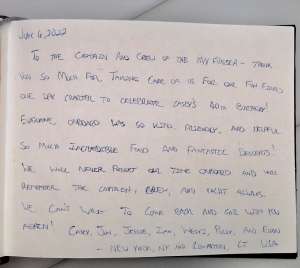 June 6, 2022
To the Captain and Crew of the M/Y - Thank
you so much for taking care of us for our fun filled,
one day charter to celebrate Casey's 40th birthday!
Everyone onboard was so kind, friendly, and helpful
So much incredible food and fantastic desserts!
We will never forget our time onboard and will
remember the captain, crew, and yacht always.
We can't wait to come back and see with you
again! Casey, Jon, Jessie, and Evan
- New York, NY and CT USA